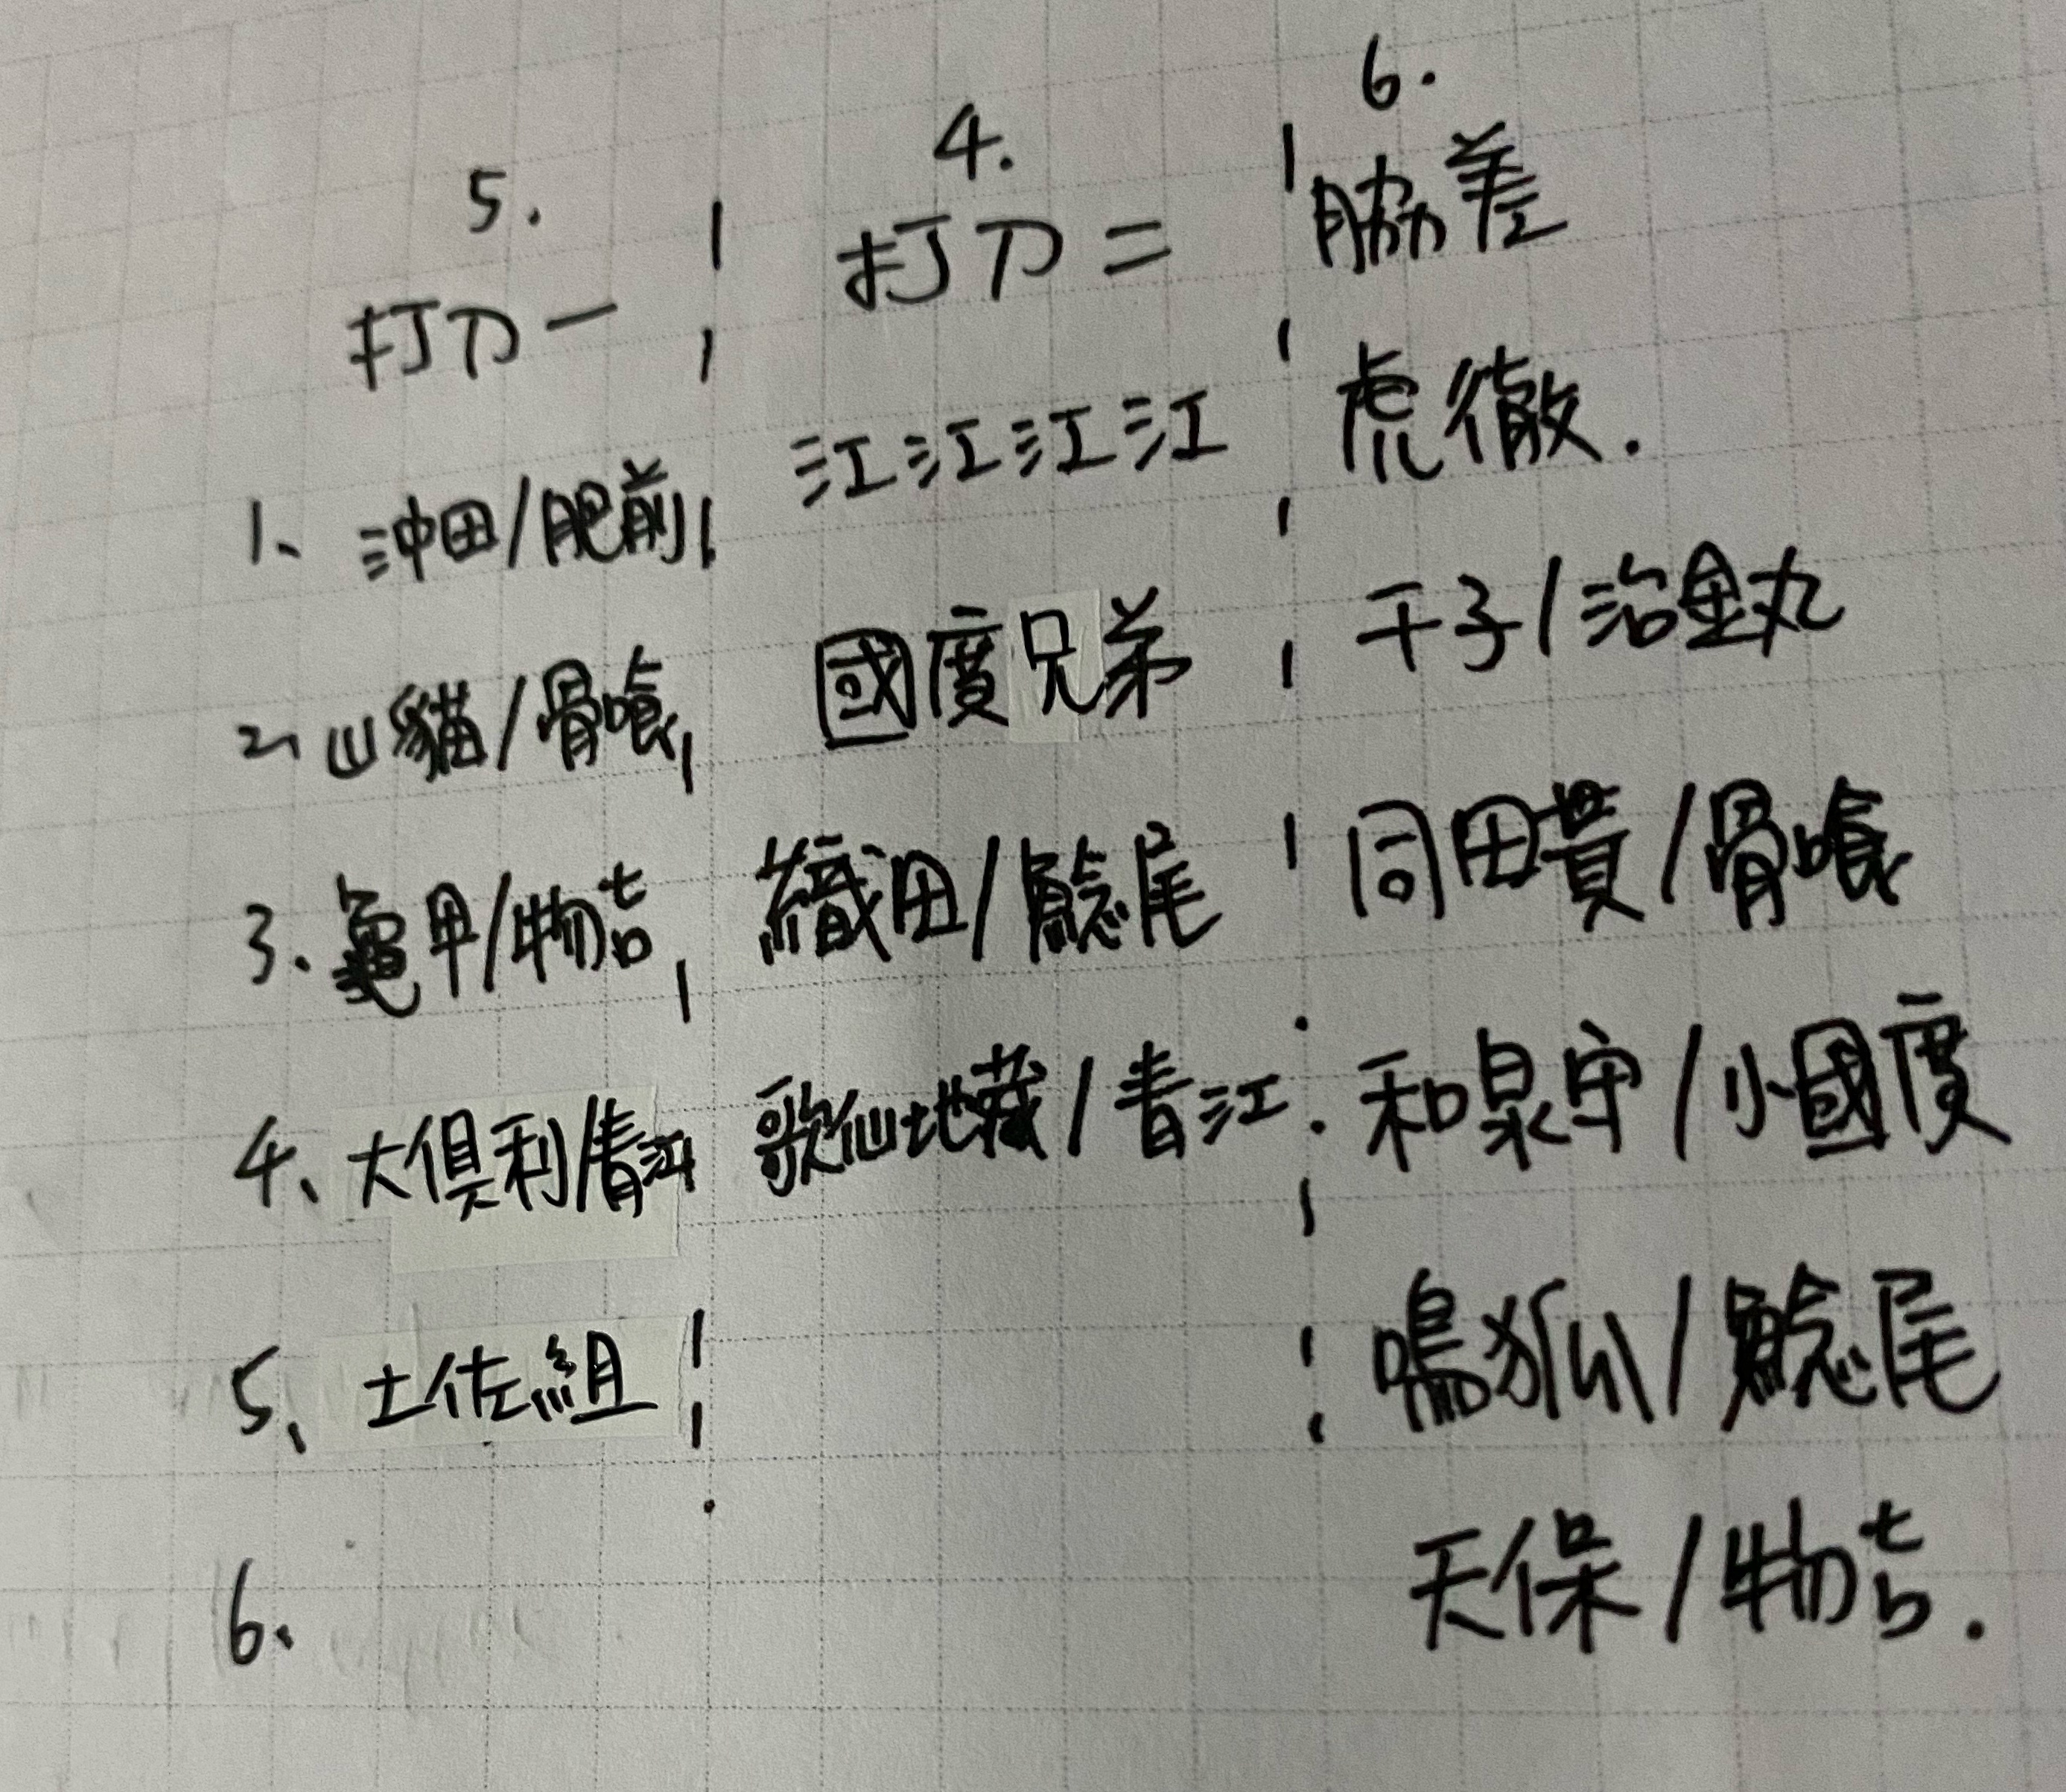 5. 4. 6.
打刀一 打刀二 脇差
1、沖田/肥前 江江江江 虎徹.
2、山貓/骨喰 國度兄弟 千子/治金丸
3.龜甲/物吉 織田/鯰尾 同田貫/骨喰
4、大俱利/青江 歌仙地藏/青江 和泉守/小國度
5、土佐組 鳴狐/鯰尾
6、 天保/物吉.